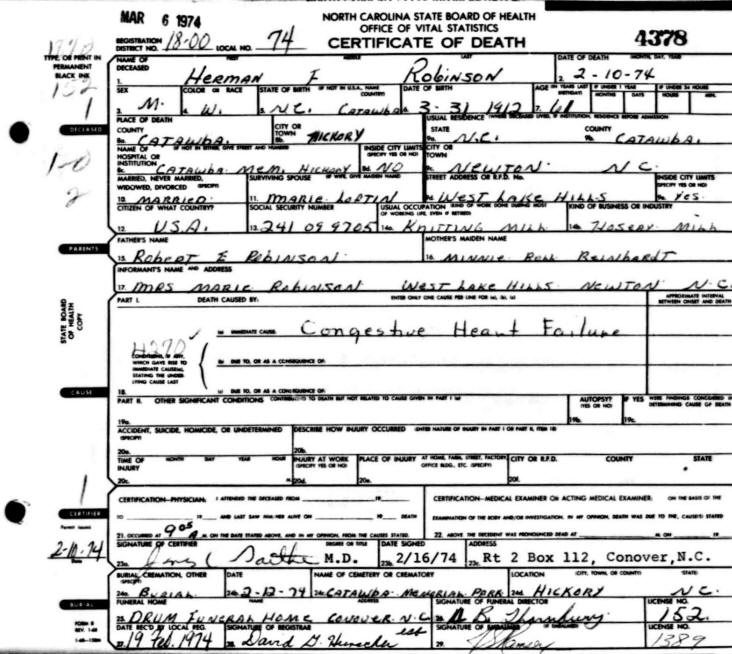 MAR 6 1974
NORTH CAROLINA STATE BOARD OF HEALTH
OFFICE OF VITAL STATISTICS
CERTIFICATE OF DEATH
4378
REGISTRATION DISTRICT NO. 18-00 LOCAL NO. 74
TYPE, OR PRINT IN PERMANENT BLACK INK
152
1
1. NAME OF DECEASED FIRST MIDDLE LAST Herman F Robinson
2. DATE OF DEATH MONTH, DAY, YEAR 2-10-74
3. SEX M.
4. COLOR OR RACE W.
5. STATE OF BIRTH (IF NOT IN U.S.A., NAME COUNTRY) N.C. Catawba
6. DATE OF BIRTH 3-31-1912
7. AGE (IN YEARS LAST BIRTHDAY) 61
IF UNDER 1 YEAR MONTHS DAYS
IF UNDER 24 HOURS HOURS MIN.
DECEASED
PLACE OF DEATH
8a. COUNTY Catawba.
8b. CITY OR TOWN Hickory
USUAL RESIDENCE (WHERE DECEASED LIVED, IF INSTITUTION, RESIDENCE BEFORE ADMISSION)
9a. STATE N.C.
9b. COUNTY Catawba.
8c. NAME OF HOSPITAL OR INSTITUTION (IF NOT IN EITHER, GIVE STREET AND NUMBER) Catawba Mem. Hickory
8d. INSIDE CITY LIMITS (SPECIFY YES OR NO) NO
9c. CITY OR TOWN Newton N C.
10. MARRIED, NEVER MARRIED, WIDOWED, DIVORCED (SPECIFY) Married.
11. SURVIVING SPOUSE (IF WIFE, GIVE MAIDEN NAME) Marie Loftin
9d. STREET ADDRESS OR R.F.D. No. West Lake Hills
9e. INSIDE CITY LIMITS (SPECIFY YES OR NO) Yes.
12. CITIZEN OF WHAT COUNTRY? U.S.A.
13. SOCIAL SECURITY NUMBER 241 09 9705
14a. USUAL OCCUPATION (KIND OF WORK DONE DURING MOST OF WORKING LIFE, EVEN IF RETIRED) Knitting Mill
14b. KIND OF BUSINESS OR INDUSTRY Hosery Mill
PARENTS
15. FATHER'S NAME Robert E Robinson.
16. MOTHER'S MAIDEN NAME Minnie Reinhardt
17. INFORMANT'S NAME AND ADDRESS Mrs Marie Robinson West Lake Hills Newton N.C.
STATE BOARD OF HEALTH COPY
PART I. DEATH CAUSED BY: ENTER ONLY ONE CAUSE PER LINE FOR (a), (b), (c)
APPROXIMATE INTERVAL BETWEEN ONSET AND DEATH
(a) IMMEDIATE CAUSE: Congestive Heart Failure
4270
CONDITIONS, IF ANY, WHICH GAVE RISE TO IMMEDIATE CAUSE(a), STATING THE UNDERLYING CAUSE LAST
(b) DUE TO, OR AS A CONSEQUENCE OF:
CAUSE
18. (c) DUE TO, OR AS A CONSEQUENCE OF:
PART II. OTHER SIGNIFICANT CONDITIONS CONTRIBUTING TO DEATH BUT NOT RELATED TO CAUSE GIVEN IN PART I (a)
19a.
19b. AUTOPSY? (YES OR NO)
19c. IF YES WERE FINDINGS CONSIDERED IN DETERMINING CAUSE OF DEATH
20a. ACCIDENT, SUICIDE, HOMICIDE, OR UNDETERMINED (SPECIFY)
20b. DESCRIBE HOW INJURY OCCURRED (ENTER NATURE OF INJURY IN PART I OR PART II, ITEM 18)
20c. TIME OF INJURY MONTH DAY YEAR HOUR M.
20d. INJURY AT WORK (SPECIFY YES OR NO)
20e. PLACE OF INJURY AT HOME, FARM, STREET, FACTORY OFFICE BLDG., ETC. (SPECIFY)
20f. CITY OR R.F.D. COUNTY STATE
1
CERTIFIER
CERTIFICATION—PHYSICIAN: I ATTENDED THE DECEASED FROM 19
TO 19 AND LAST SAW HIM/HER ALIVE ON 19 DEATH
21. OCCURRED AT 9 05 A M. ON THE DATE STATED ABOVE, AND IN MY OPINION, FROM THE CAUSES STATED
CERTIFICATION—MEDICAL EXAMINER OR ACTING MEDICAL EXAMINER: ON THE BASIS OF THE
EXAMINATION OF THE BODY AND/OR INVESTIGATION, IN MY OPINION, DEATH WAS DUE TO THE CAUSE(S) STATED
22. ABOVE THE DECEDENT WAS PRONOUNCED DEAD AT M. ON 19
Permit Issued
2-10-74
Date
23a. SIGNATURE OF CERTIFIER DEGREE OR TITLE M.D.
23b. DATE SIGNED 2/16/74
23c. ADDRESS Rt 2 Box 112, Conover,N.C.
BURIAL
24a. BURIAL, CREMATION, OTHER (SPECIFY) Burial
24b. DATE 2-12-74
24c. NAME OF CEMETERY OR CREMATORY Catawba Memorial Park
24d. LOCATION (CITY, TOWN, OR COUNTY) (STATE) Hickory N C.
25. FUNERAL HOME NAME ADDRESS Drum Funeral Home Conover N.C
26. SIGNATURE OF FUNERAL DIRECTOR
LICENSE NO. 152.
27. DATE REC'D BY LOCAL REG. 19 Feb. 1974
28. SIGNATURE OF REGISTRAR David G.
29. SIGNATURE OF EMBALMER
LICENSE NO. 1389
FORM 8
REV. 1-68